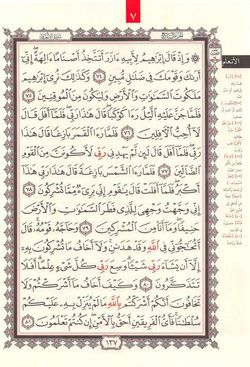 ٧
الأنعام
۞ وَإِذْ قَالَ إِبْرَاهِيمُ لِأَبِيهِ ءَازَرَ أَتَتَّخِذُ أَصْنَامًا ءَالِهَةً إِنِّي
أَرَاكَ وَقَوْمَكَ فِي ضَلَالٍ مُّبِينٍ ٧٤ وَكَذَٰلِكَ نُرِي إِبْرَاهِيمَ
مَلَكُوتَ السَّمَاوَاتِ وَالْأَرْضِ وَلِيَكُونَ مِنَ الْمُوقِنِينَ ٧٥
فَلَمَّا جَنَّ عَلَيْهِ اللَّيْلُ رَءَا كَوْكَبًا قَالَ هَٰذَا رَبِّي فَلَمَّا أَفَلَ قَالَ
لَا أُحِبُّ الْآفِلِينَ ٧٦ فَلَمَّا رَءَا الْقَمَرَ بَازِغًا قَالَ هَٰذَا
رَبِّي فَلَمَّا أَفَلَ قَالَ لَئِن لَّمْ يَهْدِنِي رَبِّي لَأَكُونَنَّ مِنَ الْقَوْمِ
الضَّالِّينَ ٧٧ فَلَمَّا رَءَا الشَّمْسَ بَازِغَةً قَالَ هَٰذَا رَبِّي هَٰذَا
أَكْبَرُ فَلَمَّا أَفَلَتْ قَالَ يَا قَوْمِ إِنِّي بَرِيءٌ مِّمَّا تُشْرِكُونَ ٧٨
إِنِّي وَجَّهْتُ وَجْهِيَ لِلَّذِي فَطَرَ السَّمَاوَاتِ وَالْأَرْضَ
حَنِيفًا وَمَا أَنَا مِنَ الْمُشْرِكِينَ ٧٩ وَحَاجَّهُ قَوْمُهُ قَالَ
أَتُحَاجُّونِّي فِي اللَّهِ وَقَدْ هَدَانِ وَلَا أَخَافُ مَا تُشْرِكُونَ بِهِ
إِلَّا أَن يَشَاءَ رَبِّي شَيْئًا وَسِعَ رَبِّي كُلَّ شَيْءٍ عِلْمًا أَفَلَا
تَتَذَكَّرُونَ ٨٠ وَكَيْفَ أَخَافُ مَا أَشْرَكْتُمْ وَلَا
تَخَافُونَ أَنَّكُمْ أَشْرَكْتُم بِاللَّهِ مَا لَمْ يُنَزِّلْ بِهِ عَلَيْكُمْ
سُلْطَانًا فَأَيُّ الْفَرِيقَيْنِ أَحَقُّ بِالْأَمْنِ إِن كُنتُمْ تَعْلَمُونَ ٨١
١٣٧